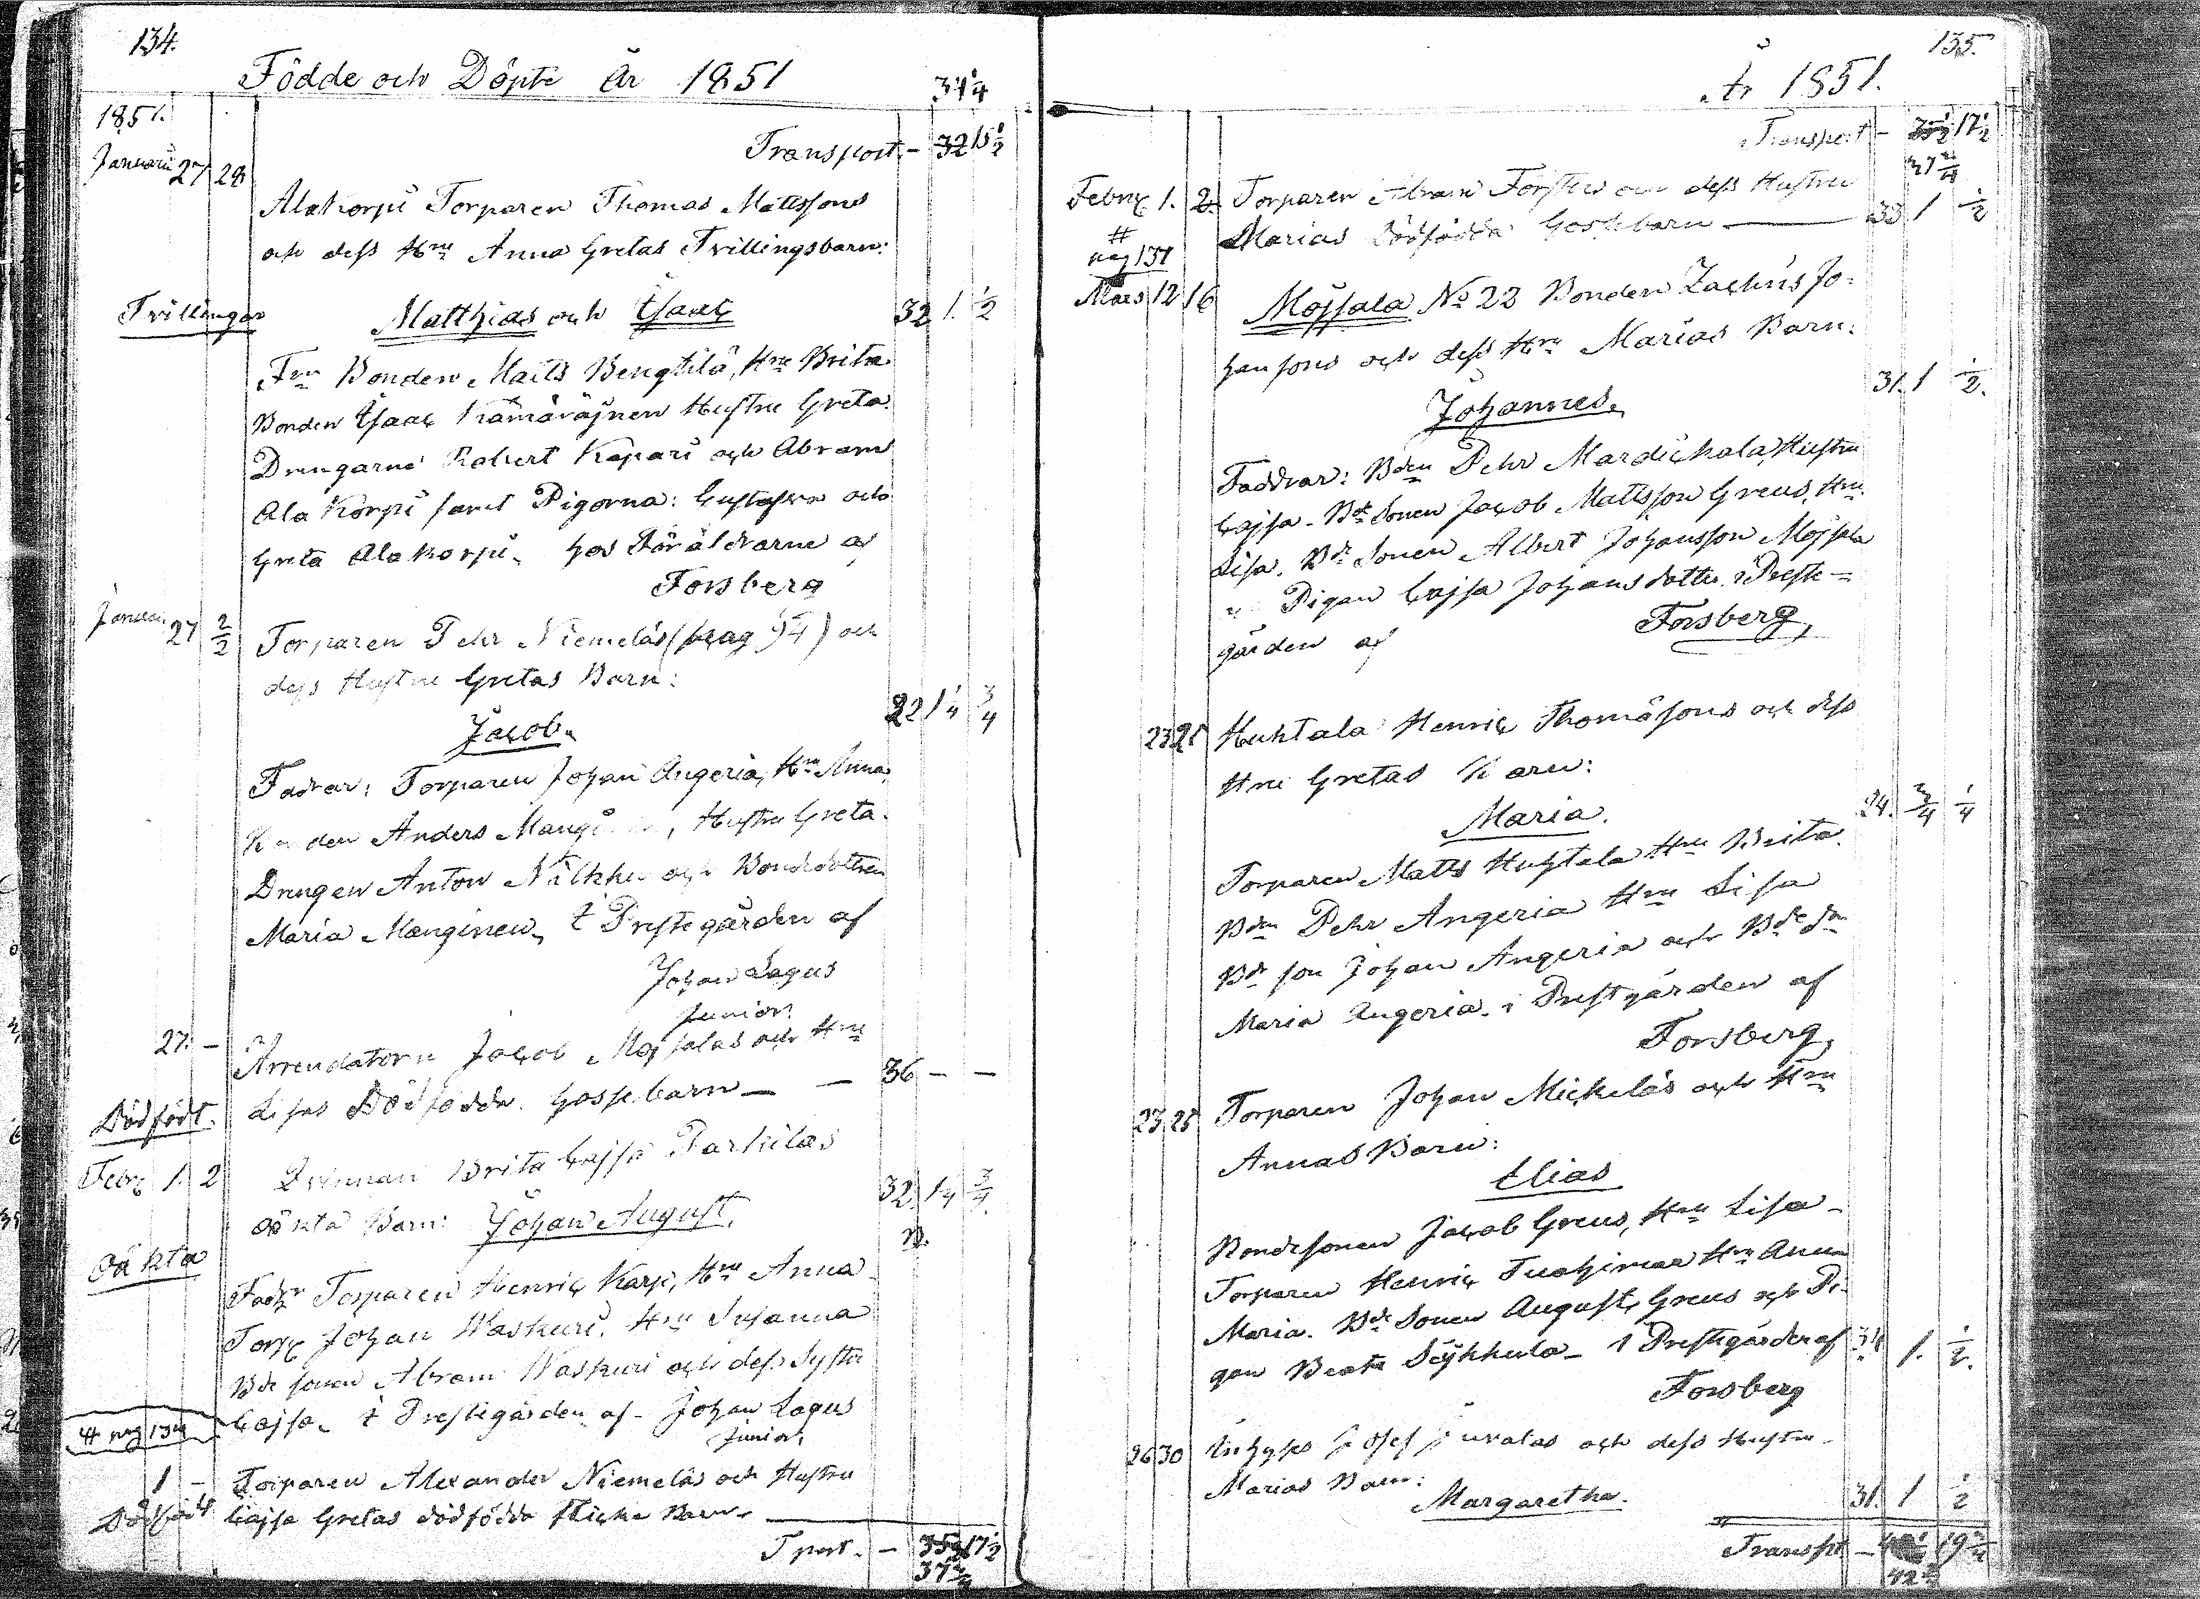 134.
Födde och Döpte År 1851
34 1/4
1851.
Transport. - 32 15 1/2
Januari 27 28
Alakorpi Torparen Thomas Mattssons
och dess Hru Anna Gretas Tvillingsbarn:
Tvillingar
Matthias och Isaac 32 1. 1/2
Bonden Matts Bengtilä, Hru Brita.
Bonden Isaac Hustru Greta.
Drengarne Robert Kapari och Abram
Ala Korpi samt Pigorna: Gustafva och
Greta Alakorpi, hos Föräldrarne af
Forsberg
27 2/2 Torparen Pehr Niemeläs (pag 94) och
dess Hustru Gretas Barn:
22 1 1/4 3/4
Jacob.
Fadrar: Torparen Johan Angeria, Hru Anna,
Bonden Anders, Hustru Greta.
Drengen Anton och Bondedottren
Maria Manginen, i Prestegården af
Johan Lagus
Junior.
27. - Arrendatorn Jacob Mojsalas och Hru
Lisas Dödfödda Gossebarn - - 36 - -
Dödfödt.
Febr 1. 2 Qvinnan Brita Cajsa Parkilas
oäkta Barn: Johan August. 32. 1 1/4 3/4.
Oäkta
Torparen Henric Karp, Hru Anna
Johan Waskuri, Hru Susanna
Bde sonen Abram Waskuri och dess Syster
Cajsa, i Prestegården af - Johan Lagus
Junior.
# pag 134
1 - Torparen Alexander Niemeläs och Hustru
Dödfödt Cajsa Gretas dödfödda flicke Barn -
Tport. - 35 17 1/2
37 3/4
135.
År 1851.
Transport - 17 1/2
37 3/4
1. 2. Torparen Abram och dess Hustru
Marias Dödfödda Gossebarn 33 1 1/2
#
pag 134
Mars 12 16 Mojsala No 22 Bonden Zachris Jo-
hanssons och dess Hru Marias Barn:
31. 1 1/2.
Johannes.
Faddrar: Bden Pehr Mardickala, Hustru
Cajsa. Bde Sonen Jacob Mattsson Greus, Hru
Lisa. Bde Sonen Albert Johansson Mojsala
Pigan Cajsa Johansdotter i Preste-
gården af Forsberg,
23 25 Huhtala Henric Thomassons och dess
Hru Gretas Barn:
24. 3/4 1/4
Maria.
Torparen Matts Huhtala Hru Brita.
Bden Pehr Angeria Hru Lisa
Bde son Johan Angeria och Bde dr
Maria Angeria. i Prestgården af
Forsberg,
23 25 Torparen Johan Mickeläs och Hru
Annas Barn:
Elias
Bondesonen Jacob Greus, Hru Lisa -
Torparen Henric Hru Anna
Maria. Bde Sonen August Greus och Pi-
gan Beata - i Prestegården af 34 1. 1/2.
Forsberg
26 30 Inhyses Josef och dess Hustru
Marias Barn:
Margaretha. 31. 1 1/2
Transpt - 19 3/4